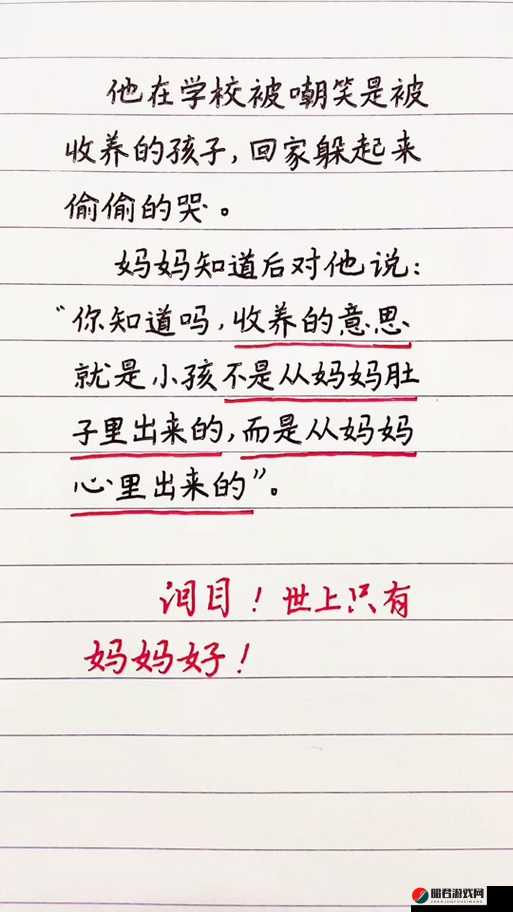 他在学校被嘲笑是被
收养的孩子,回家躲起来
偷偷的哭。
妈妈知道后对他说:
“你知道吗,收养的意思
就是小孩不是从妈妈肚
子里出来的,而是从妈妈
心里出来的”。
泪目!世上只有
妈妈好!